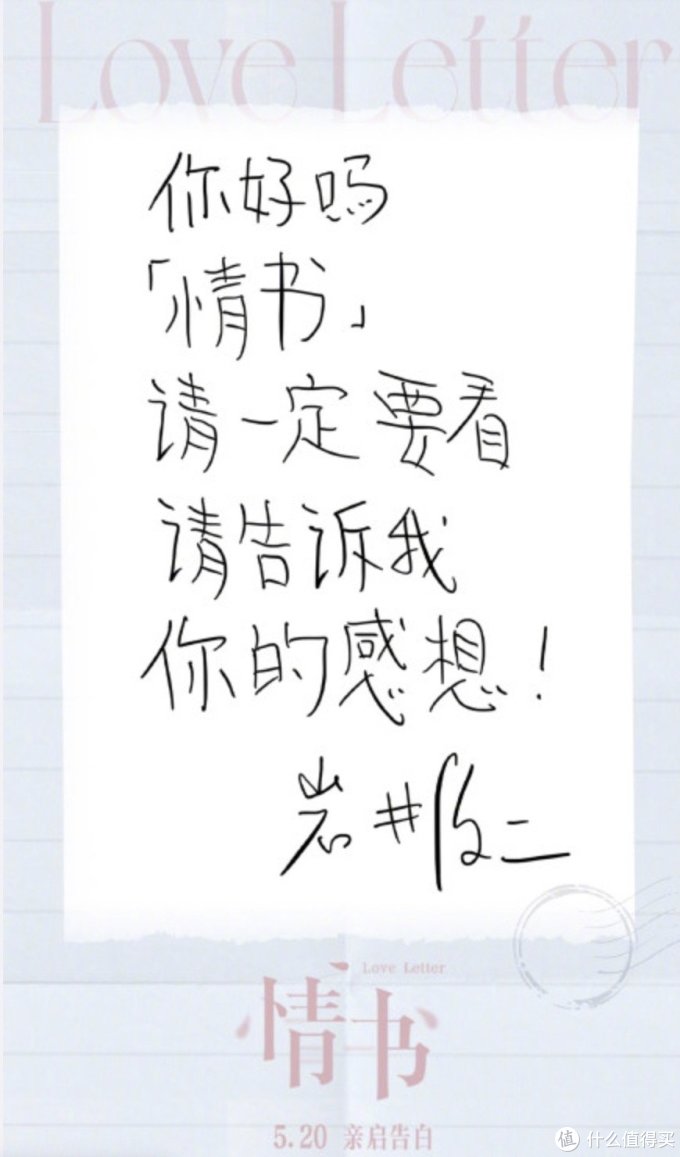 Love Letter
你好吗
「情书」
请一定要看
请告诉我
你的感想！
岩井俊二
Love Letter
情书
5.20 亲启告白
值 什么值得买